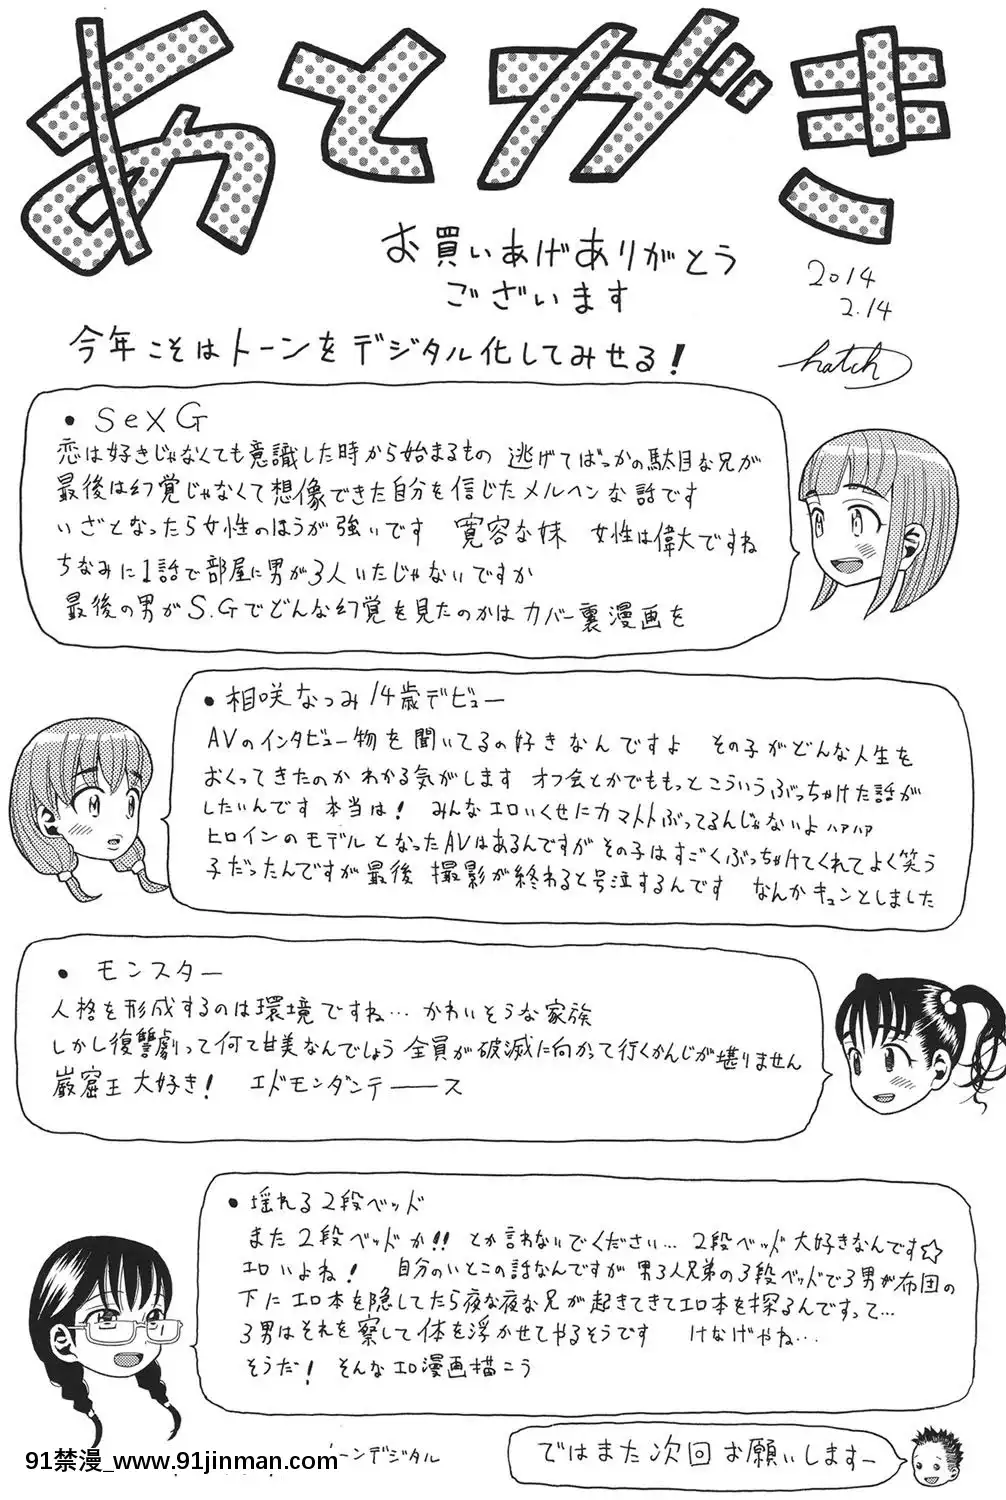 あとがき
お買いあげありがとう
ございます
2014
2.14
今年こそはトーンをデジタル化してみせる！
hatch
• SeX G
恋は好きじゃなくても意識した時から始まるもの 逃げてばっかの駄目な兄が
最後は幻覚じゃなくて想像できた自分を信じたメルヘンな話です
いざとなったら女性のほうが強いです 寛容な妹 女性は偉大ですね
ちなみに1話で部屋に男が3人いたじゃないですか
最後の男がS.Gでどんな幻覚を見たのかはカバー裏漫画を
• 相咲なつみ14歳デビュー
AVのインタビュー物を聞いてるの好きなんですよ その子がどんな人生を
おくってきたのかわかる気がします オフ会とかでももっとこういうぶっちゃけた話が
したいんです 本当は！ みんなエロいくせにカマトトぶってるんじゃないよ ハァハァ
ヒロインのモデルとなったAVはあるんですがその子はすごくぶっちゃけてくれてよく笑う
子だったんですが最後 撮影が終わると号泣するんです なんかキュンとしました
• モンスター
人格を形成するのは環境ですね… かわいそうな家族
しかし復讐劇って何て甘美なんでしょう 全員が破滅に向かって行くかんじが堪りません
巌窟王大好き！ エドモンダンテーース
• 揺れる2段ベッド
また2段ベッドか!! とか言わないでください… 2段ベッド大好きなんです☆
エロいよね！ 自分のいとこの話なんですが 男3人兄弟の3段ベッドで3男が布団の
下にエロ本を隠してたら夜な夜な兄が起きてきてエロ本を探るんですって…
3男はそれを察して体を浮かせてやるそうです けなげやね…
そうだ！ そんなエロ漫画描こう
トーンデジタル
ではまた次回お願いしますー
91禁漫_www.91jinman.com